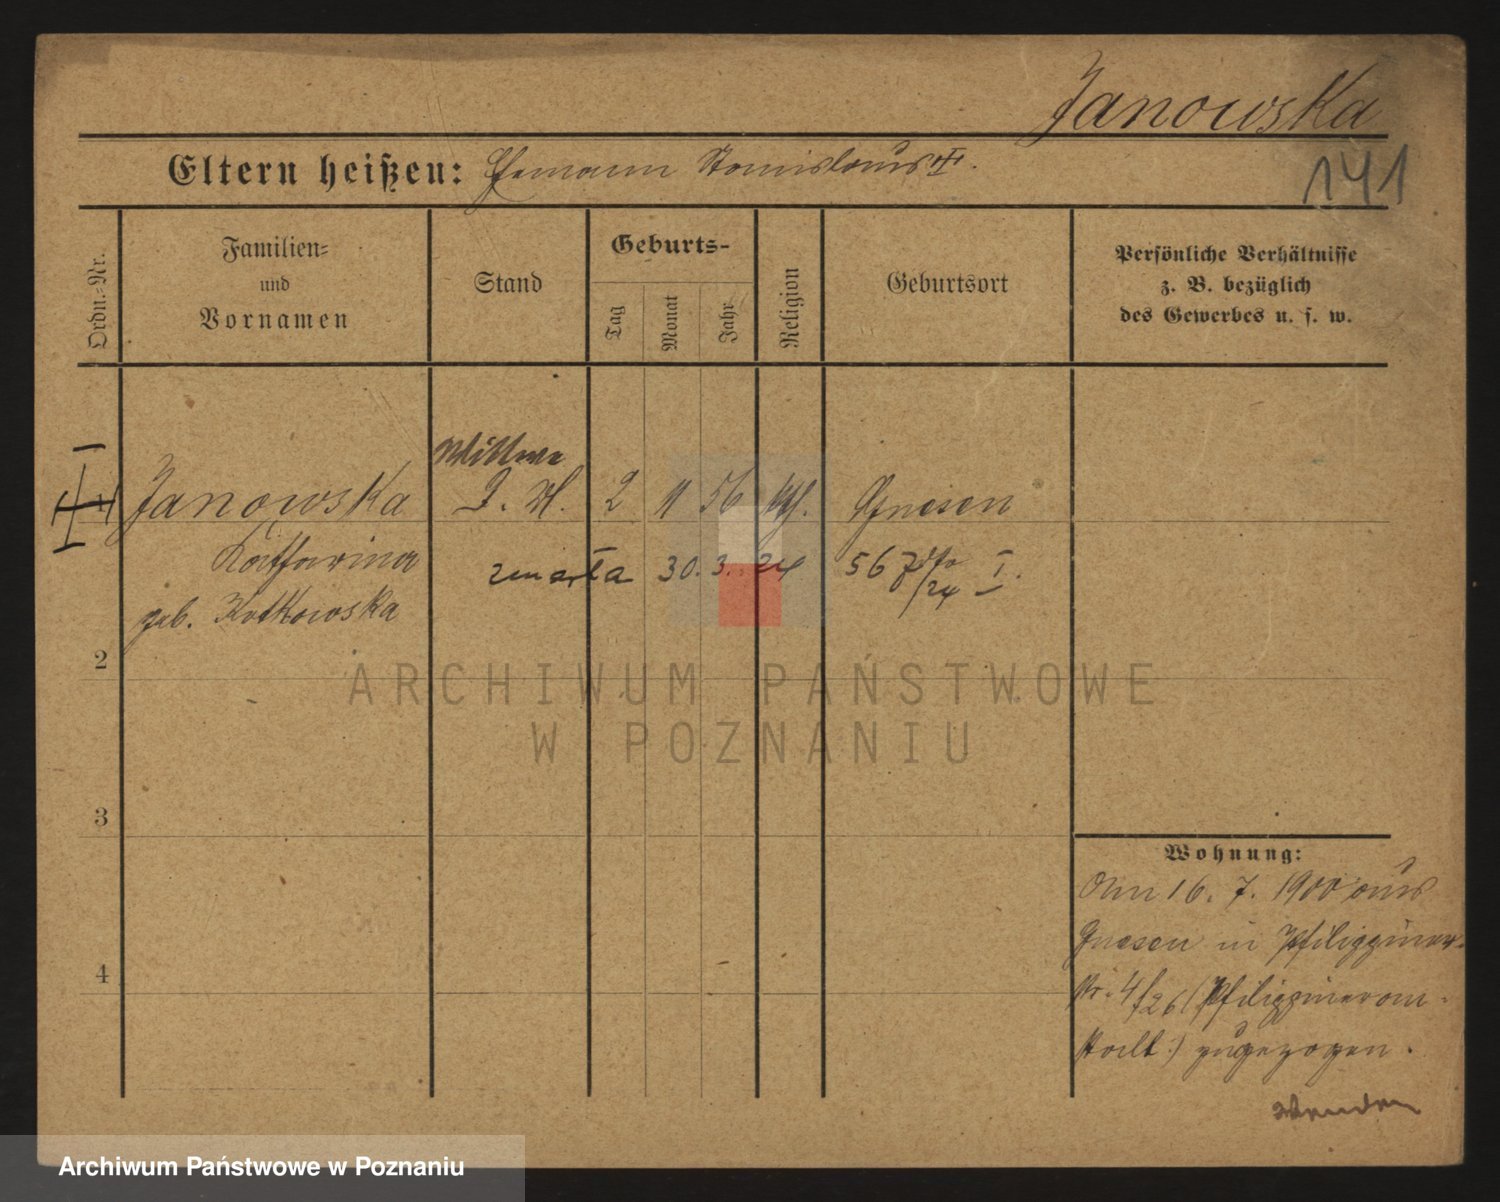 Janowska
Eltern heißen: Ehemann Stanislaus
141
Ordn.-Nr.
Familien-
und
Vornamen
Stand
Geburts-
Tag
Monat
Jahr
Religion
Geburtsort
Persönliche Verhältnisse
z. B. bezüglich
des Gewerbes u. s. w.
Wittwe
Janowska 2 11 56 kth. Gnesen
Katharina
zmarła 30. 3. 24 567 /24 I.
geb. Kotkowska
2
3
4
Wohnung:
Am 16. 7. 1900 aus
Gnesen in Philippiner-
str. 4/26 (Philippineran-
stalt) zugezogen.
Wenden
ARCHIWUM PAŃSTWOWE
W POZNANIU
Archiwum Państwowe w Poznaniu